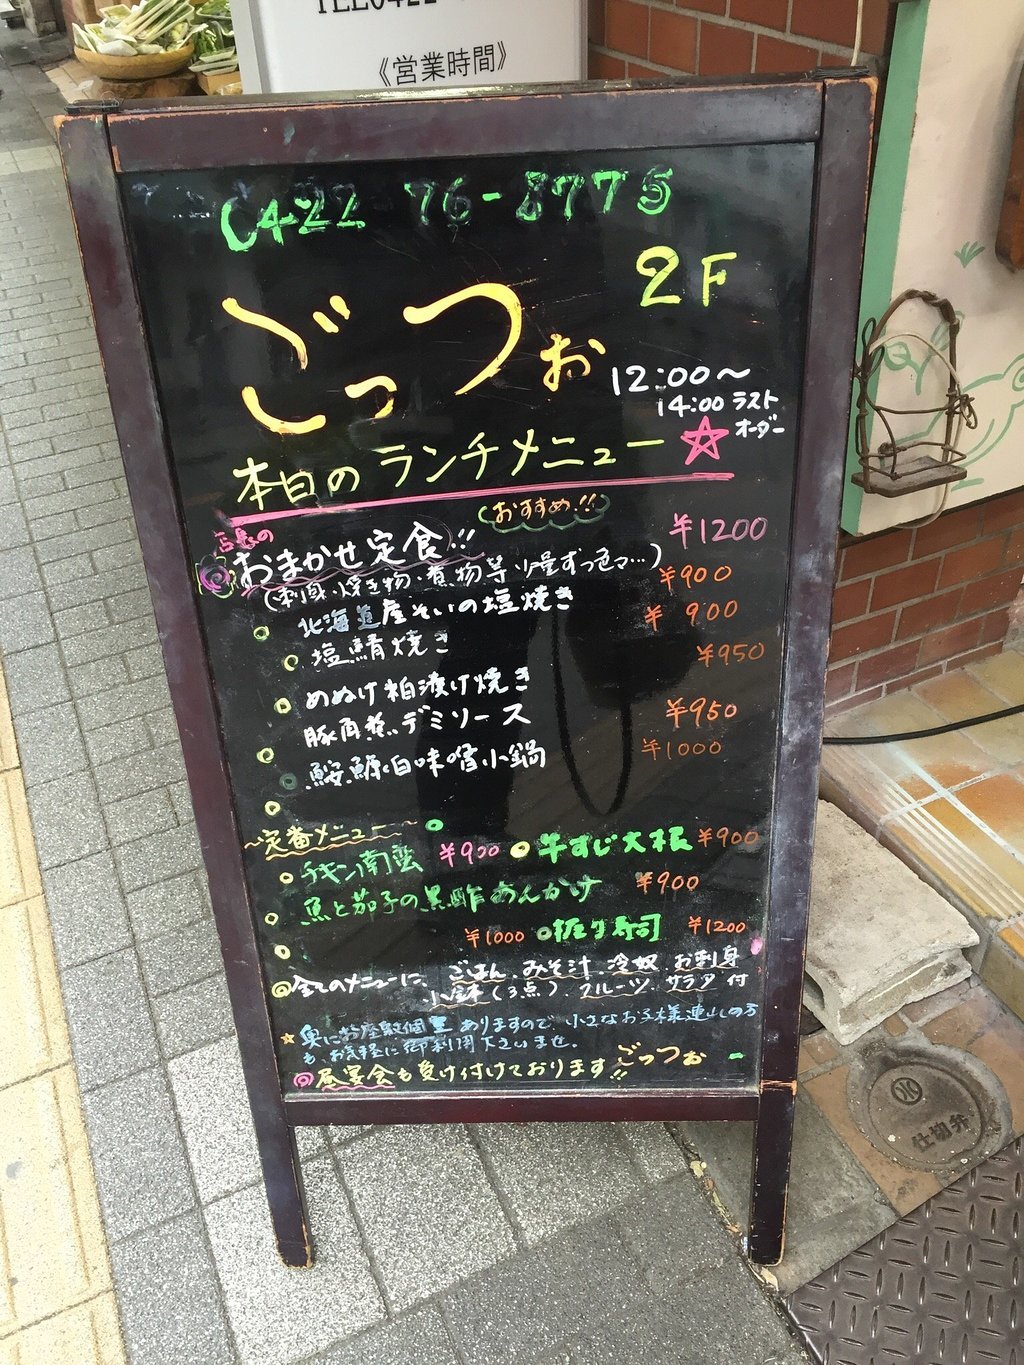 《営業時間》
0422 76-8775
2F
ごっつぉ
12:00〜
14:00 ラスト
オーダー
本日のランチメニュー☆
おすすめ!!
店長の
おまかせ定食!! ¥1200
(刺身・焼き物・煮物等少量ずつ色々…)
北海道産そいの塩焼き ¥900
塩鯖焼き ¥900
めぬけ粕漬け焼き ¥950
豚角煮デミソース ¥950
鮟鱇白味噌小鍋 ¥1000
〜定番メニュー〜
チキン南蛮 ¥900 牛すじ大根 ¥900
魚と茄子の黒酢あんかけ ¥900
¥1000 握り寿司 ¥1200
◎全てのメニューに、ごはん、みそ汁、冷奴、お刺身
小鉢(3点)、フルーツ、サラダ付
★奥にお座敷個室ありますので、小さなお子様連れの方
も、お気軽に御利用下さいませ。
◎昼宴会も受け付けております!! ごっつぉ
仕切弁